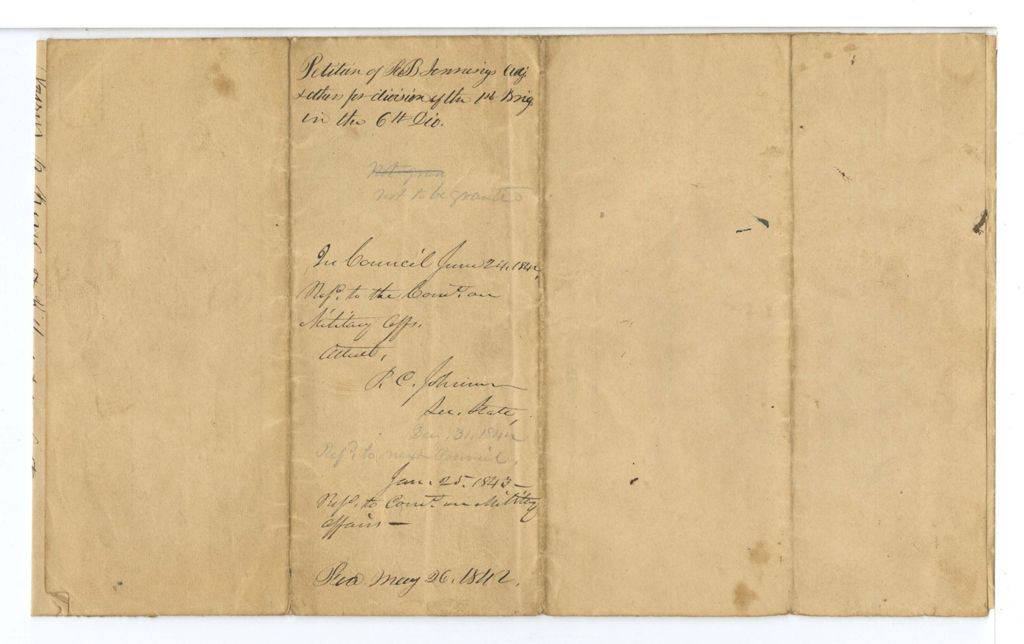 Petition of R B Jennings Adj.
& others for division of the 1st Brig
in the 6th Div.
Not gran
not to be granted
In Council June 24, 1842,
Refd. to the Comt. on
Military Affs.
Attest,
P. C. Johnson
Sec. State,
Dec. 31, 1842
Refd. to next Council,
Jan. 25. 1843 —
Refd. to Comt. on Military
affairs —
Recd May 26, 1842.